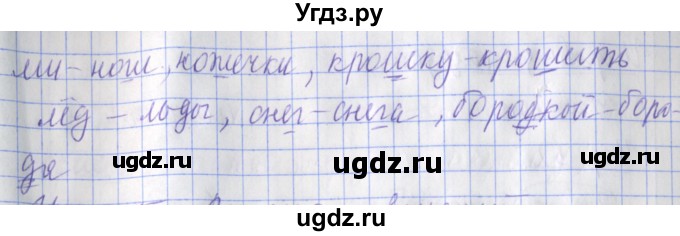 Угдз.ру
ми - нош, ножечки, крошку - крошить
лёд - льды, снег - снега, бородкой - боро-
да
ugdz.ru ugdz.ru ugdz.ru
ugdz.ru